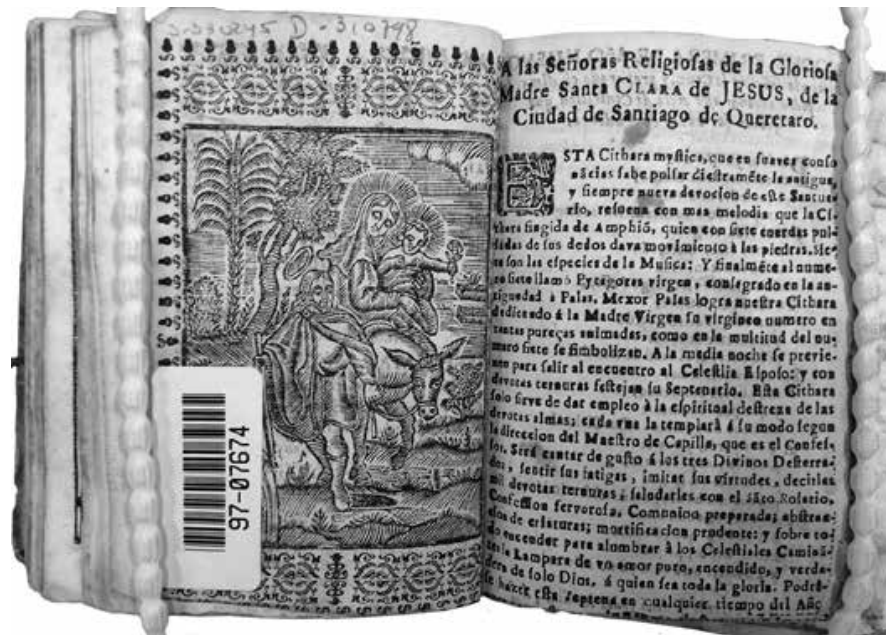 S-330245 D-310798
97-07674
A las Señoras Religiosas de la Gloriosa
Madre Santa CLARA de JESUS, de la
Ciudad de Santiago de Queretaro.
ESTA Cithara mystica, que en suaves conso
nācias sabe pulsar diestramēte la antigua,
y siempre nueva devocion de este Santua-
rio, resuena con mas melodia que la Ci-
thara fingida de Amphiō, quien con siete cuerdas pul-
sadas de sus dedos dava movimiento à las piedras. Sie-
te son las especies de la Musica: Y finalmēte al nume-
ro siete llamò Pytagoras virgen, consagrado en la an-
tiguedad à Palas. Mexor Palas logra nuestra Cithara
dedicando à la Madre Virgen su virgineo numero en
tantas pureças animadas, como en la multitud del nu-
mero siete se simbolizan. A la media noche se previe-
nen para salir al encuentro al Celestial Esposo: y con
devotas ternuras festejan su Septenario. Esta Cithara
solo sirve de dar empleo à la espiritual destreza de las
devotas almas; cada una la templarà à su modo segun
la direccion del Maestro de Capilla, que es el Confes-
sor. Serà cantar de gusto à los tres Divinos Desterra-
dos, sentir sus fatigas, imitar sus virtudes, decirles
mil devotas ternuras; saludarles con el sāto Rosario.
Confession fervorosa. Comunion preparada; abstrac-
cion de criaturas; mortificacion prudente: y sobre to-
do encender para alumbrar à los Celestiales Caminā-
tes la Lampara de vn amor puro, encendido, y verda-
dero de solo Dios, à quien sea toda la gloria. Podrà-
se hazer esta Septena en cualquier tiempo del Año